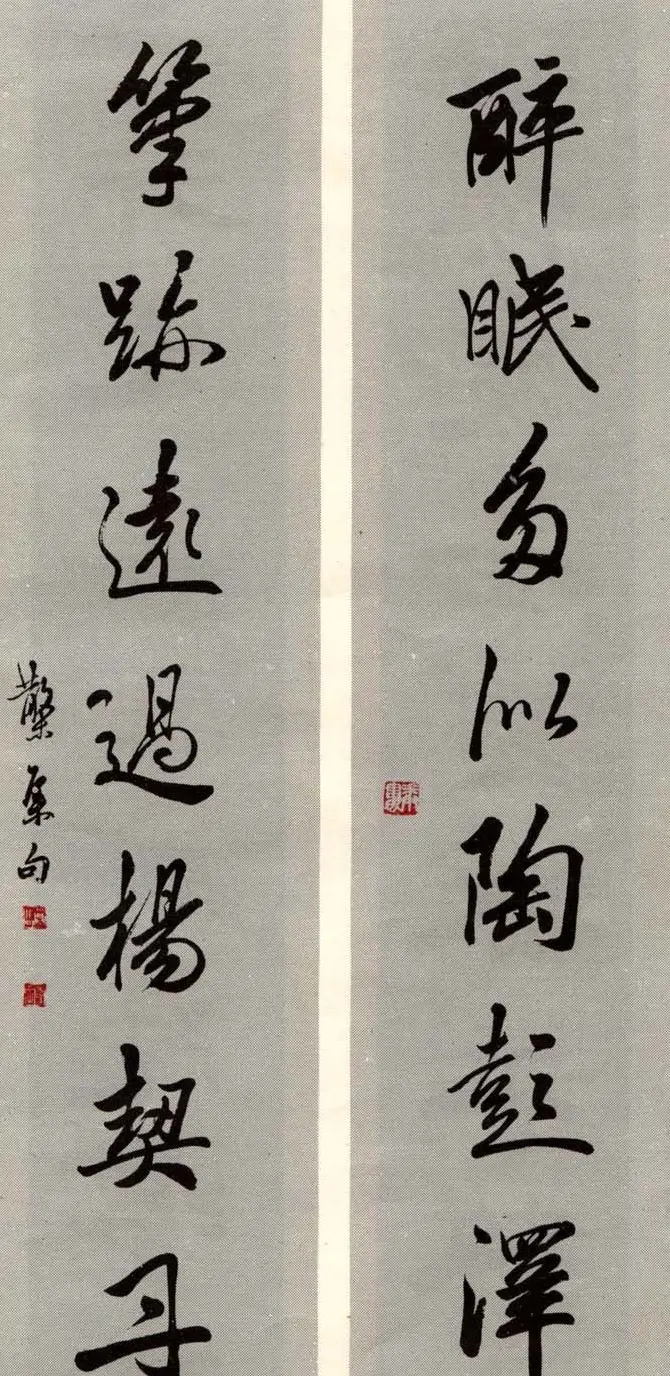 醉眠多似陶彭澤
筆跡遠過楊契丹
集句